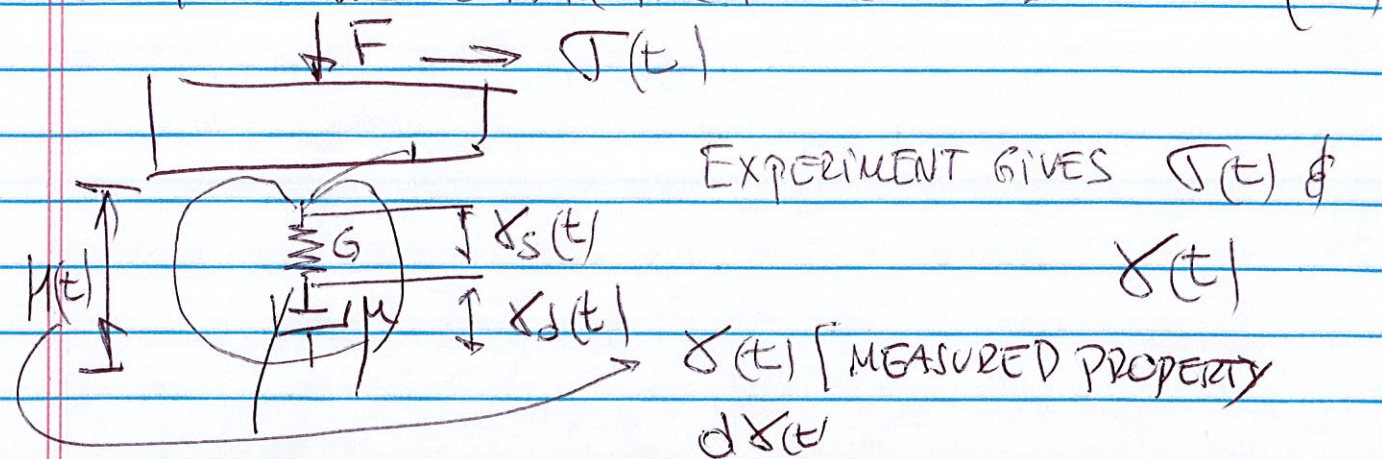 F → σ(t)
EXPERIMENT GIVES σ(t) &
γ(t)
G γs(t)
H(t)
μ γd(t)
γ(t) MEASURED PROPERTY
dγ(t